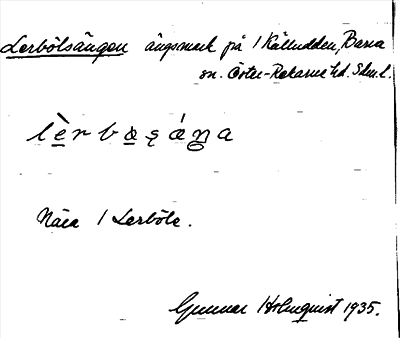 Lerbölsängen ängsmark på 1 Källudden, Barva
sn. Öster-Rekarne hd. Sdm.l.
lèrbɷs̨áŋa
Nära 1 Lerböle.
Gunnar Holmquist 1935.